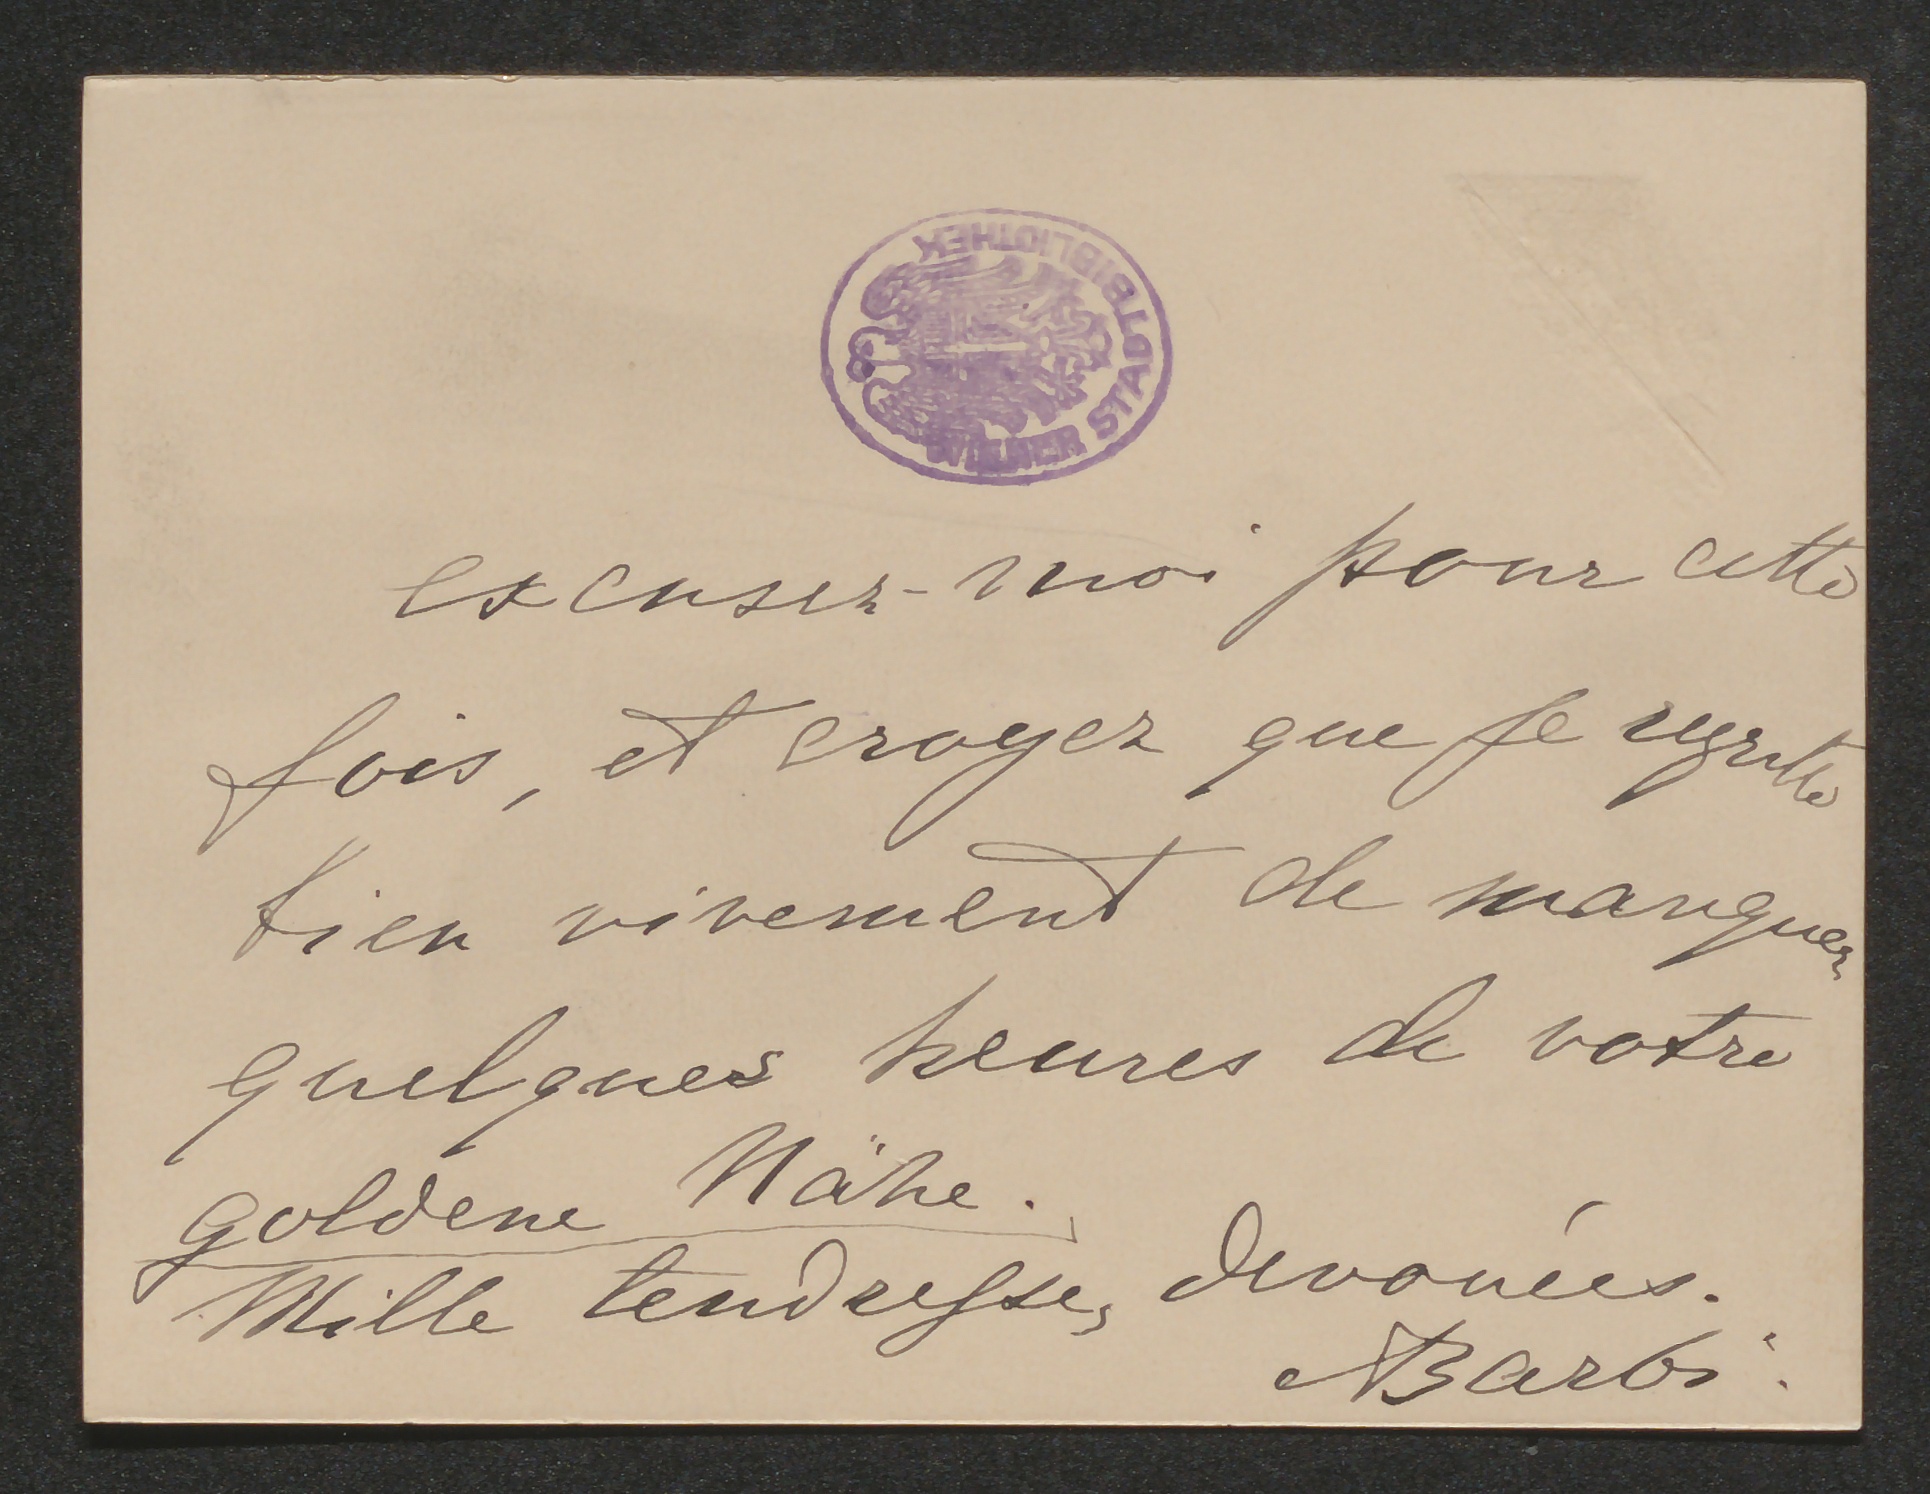 WIENER STADTBIBLIOTHEK
excusez-moi pour cette
fois, et croyez que je regrette
bien vivement de manquer
quelques heures de votre
goldene Nähe.
Mille tendresses dévouées.
ABarbi.